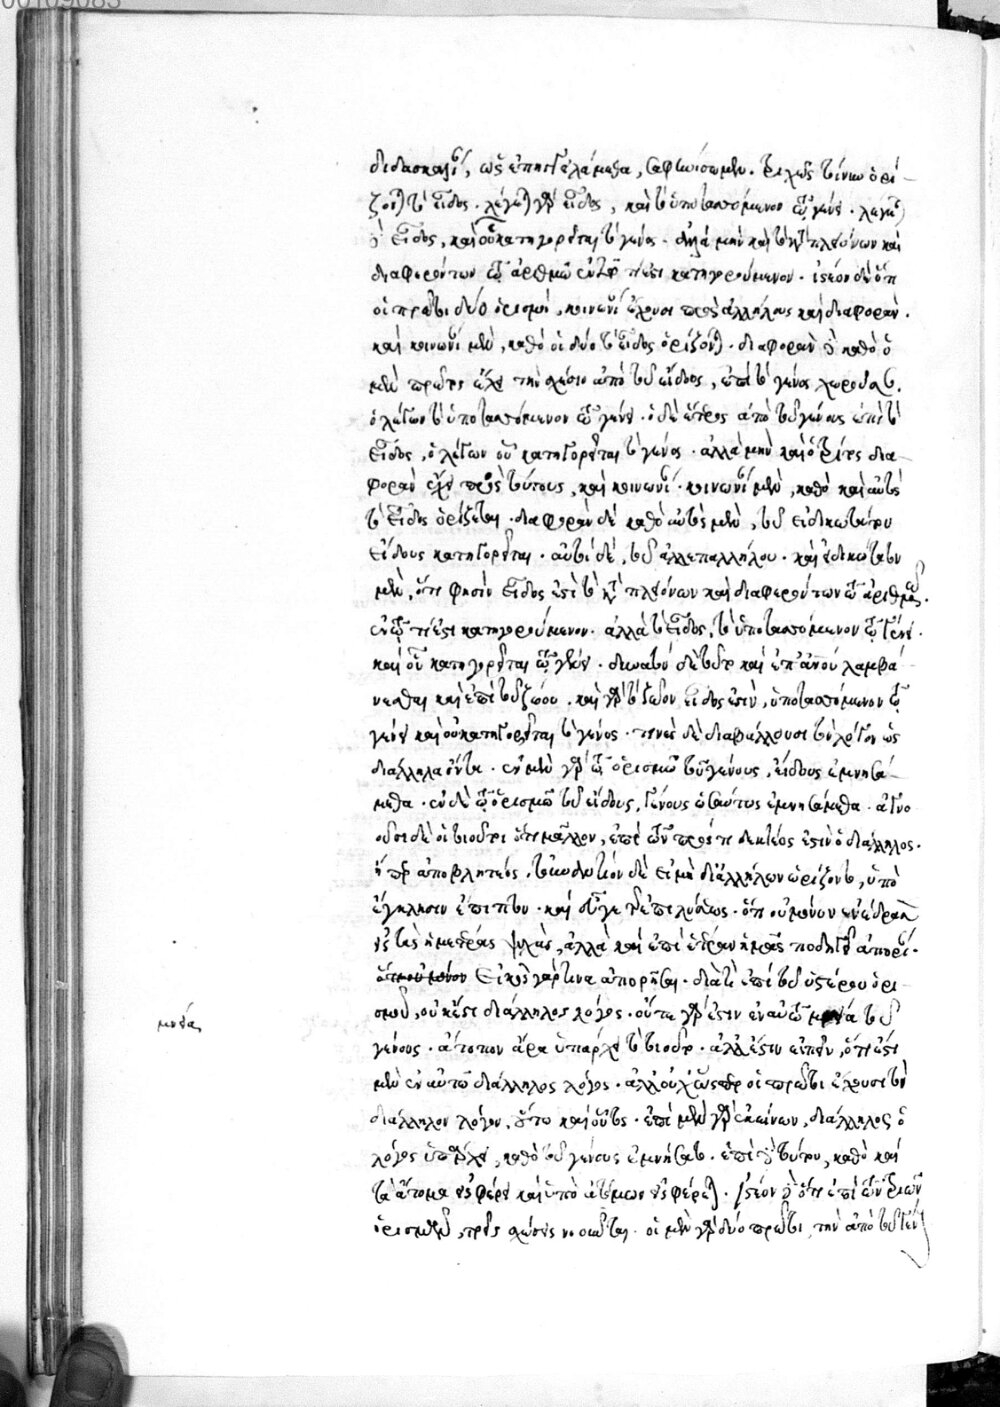 διδασκαλί, ὡς ἐπηγγειλάμεθα, σαφωνίσωμεν. τριχῶς τίνυν ὁρί-
ζονται τὸ εἶδος. λέγεται γὰρ εἶδος, καὶ τὸ ὑποτασσόμενον τῷ γένει. λέγεται
δὲ εἶδος, καὶ οὗ κατηγορεῖται τὸ γένος. ἀλλὰ μὴν καὶ τὸ κατὰ πλειόνων καὶ
διαφερόντων τῷ ἀριθμῷ ἐν τῷ τί ἐστι κατηγορούμενον. ἰστέον δὲ ὅτι
οἱ πρῶτοι δύο ὁρισμοὶ, κοινωνίαν ἔχουσι πρὸς ἀλλήλους καὶ διαφοράν.
καὶ κοινωνίαν μὲν, καθὸ οἱ δύο τὸ εἶδος ὁρίζονται. διαφορὰν δὲ καθὸ ὁ
μὲν πρῶτος ἔχει τὴν σχέσιν ἀπὸ τοῦ εἴδους, ἐπὶ τὸ γένος χωροῦσαν.
ὁ λέγων τὸ ὑποτασσόμενον τῷ γένει. ὁ δὲ ἕτερος ἀπὸ τοῦ γένους ἐπὶ τὸ
εἶδος, ὁ λέγων οὗ κατηγορεῖται τὸ γένος. ἀλλὰ μὴν καὶ ὁ τρίτος δια-
φορὰν ἔχει πρὸς τούτους, καὶ κοινωνίαν. κοινωνίαν μὲν, καθὸ καὶ αὐτὸς
τὸ εἶδος ὁρίζεται. διαφορὰν δὲ καθὸ αὐτὸς μὲν, τοῦ εἰδικωτάτου
εἴδους κατηγορεῖται. αὐτοὶ δὲ, τοῦ ἀλλεπαλλήλου. καὶ εἰδικώτατον
μὲν, ὅτι φησὶν εἶδος ἐστὶ τὸ κατὰ πλειόνων καὶ διαφερόντων τῷ ἀριθμῷ.
ἐν τῷ τί ἐστι κατηγορούμενον. ἀλλὰ τὸ εἶδος, τὸ ὑποτασσόμενον τῷ γένει.
καὶ οὗ κατηγορεῖται τὸ γένος. δυνατὸν δὲ τοῦτο καὶ ἐπ' ἀνου λαμβά-
νεσθαι καὶ ἐπὶ τοῦ ζώου. καὶ γὰρ τὸ ζῶον εἶδος ἐστὶν, ὑποτασσόμενον τῷ
γένει καὶ οὗ κατηγορεῖται τὸ γένος. τινὲς δὲ διαβάλλουσι τὸν λόγον ὡς
διάλληλα ὄντα. ἐν μὲν γὰρ τῷ ὁρισμῷ τοῦ γένους, εἴδους ἐμνησά-
μεθα. ἐν δὲ τῷ ὁρισμῷ τοῦ εἴδους, γένους ὡσαύτως ἐμνησάμεθα. ἀγνο
οῦσι δὲ οἱ τοιοῦτοι ὅτι μᾶλλον, ἐπὶ τῶν πρός τι δεκτέος ἐστὶν ὁ διάλληλος.
ἤπερ ἀποβλητέος. τοὐναντίον δὲ εἰ μὴ δι' ἀλλήλων ὡρίζοντο, ὑπὸ
ἔγκλησιν ἔπιπτον. καὶ
τὰς ἡμετέρας ψυχὰς, ἀλλὰ καὶ ἐπὶ ἑτέραν ἡμᾶς ποδηγεῖ ἀπορίαν.
ὅτι οὐ μόνον Εἰκὸς γάρ τινα ἀπορῆσαι. διὰ τί ἐπὶ τοῦ ὑστέρου ὁρι-
σμοῦ, οὐκ ἔστι διάλληλος λόγος. οὔτε γάρ ἐστιν ἐν αὐτῷ μνεία τοῦ
γένους. ἄτοπον ἄρα ὑπάρχει τὸ τοιοῦτο. ἀλλ' ἔστιν εἰπεῖν, ὅτι ἔστι
μὲν ἐν αὐτῷ διάλληλος λόγος. ἀλλ' οὐχ ὥσπερ οἱ πρῶτοι ἔχουσι τὸν
διάλληλον λόγον, οὕτω καὶ οὗτος. ἐπὶ μὲν γὰρ ἐκείνων, διάλληλος ὁ
λόγος ὑπῆρχε, καθὸ τοῦ γένους ἐμνήσατο. ἐπὶ δὲ τούτου, καθὸ καὶ
τὰ ἄτομα εἰσφέρει καὶ ὑπὸ ἀτόμων εἰσφέρεται. ἰστέον δὲ ὅτι ἐπὶ τῶν τριῶν
ὁρισμῶν, τρεῖς σχέσεις νοοῦνται. οἱ μὲν γὰρ δύο πρῶτοι, τὴν ἀπὸ τοῦ γέν
μνεία